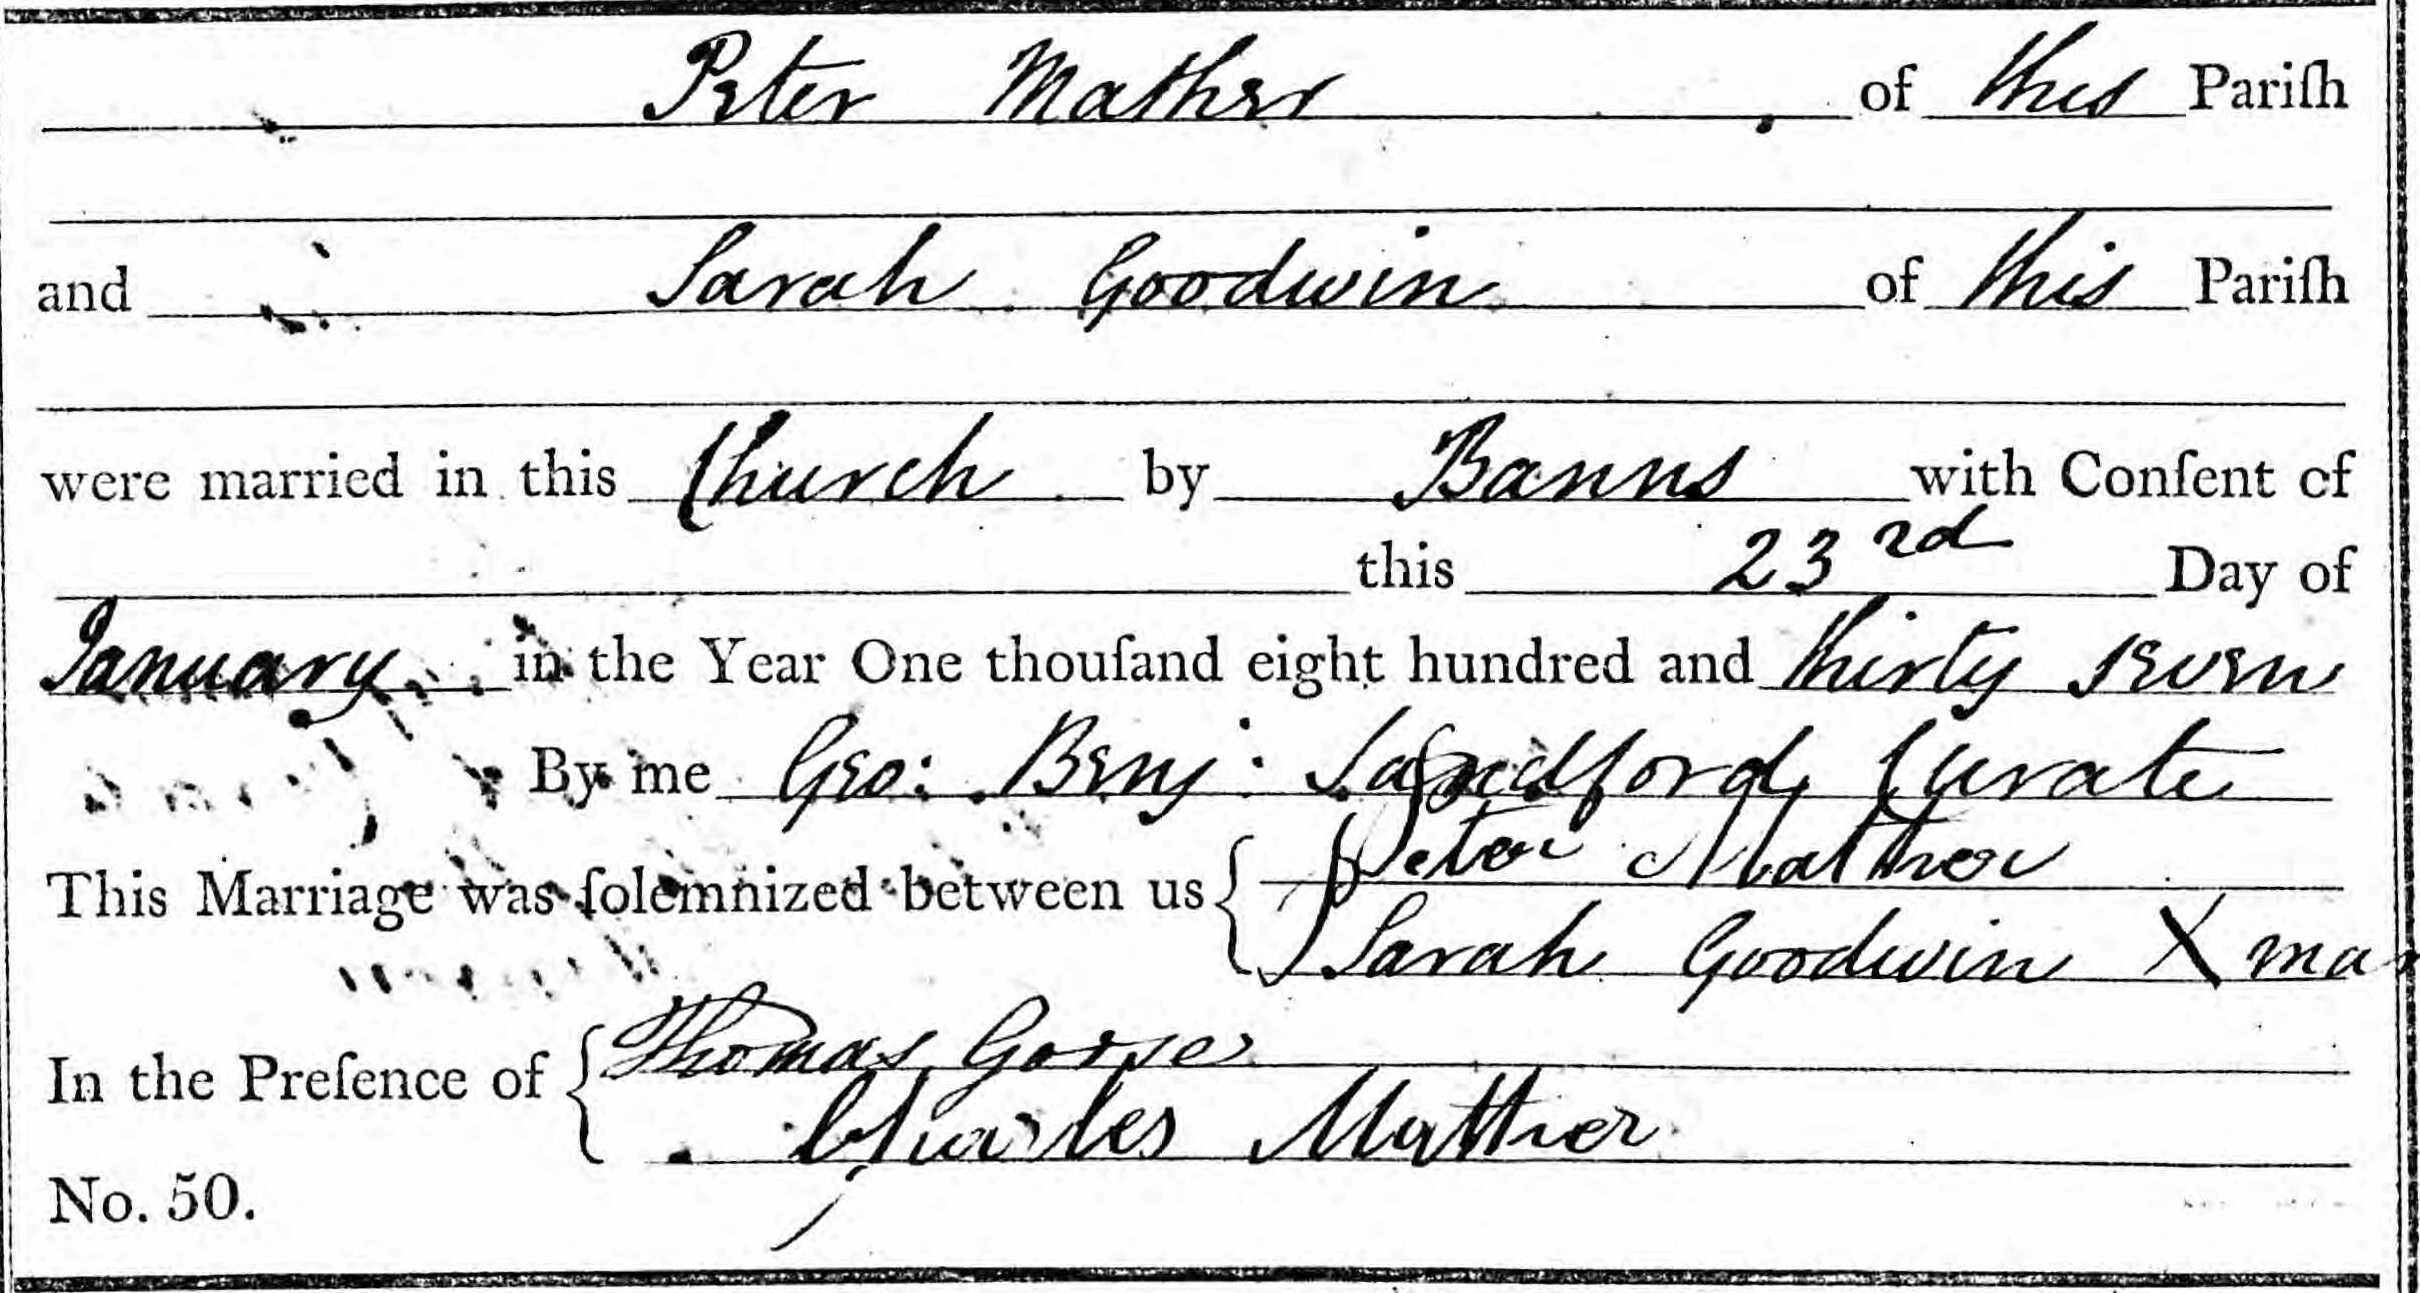 Peter Mather of this Pariſh
and Sarah Goodwin of this Pariſh
were married in this Church by Banns with Conſent of
this 23rd Day of
January in the Year One thouſand eight hundred and thirty seven
By me Geo: Benj: Sandford Curate
This Marriage was ſolemnized between us { Peter Mather
Sarah Goodwin X mar
In the Preſence of { Thomas Gorse
Charles Mather
No. 50.